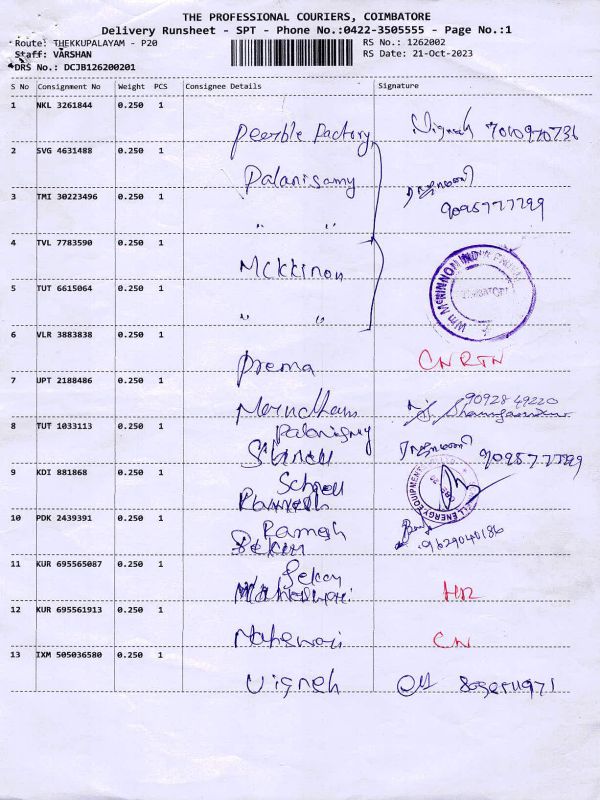 THE PROFESSIONAL COURIERS, COIMBATORE
Delivery Runsheet - SPT - Phone No.:0422-3505555 - Page No.:1
Route: THEKKUPALAYAM - P20
RS No.: 1262002
Staff: VARSHAN
RS Date: 21-Oct-2023
DRS No.: DCJB126200201
S No Consignment No Weight PCS Consignee Details Signature
1 NKL 3261844 0.250 1
Peerble Factory Vignesh
2 SVG 4631488 0.250 1
Palanisamy ராஜாமணி
3 TMI 30223496 0.250 1 9095777299
" "
4 TVL 7783590 0.250 1
Mckkinon
5 TUT 6615064 0.250 1
" "
6 VLR 3883838 0.250 1
Prema CN RTN
7 UPT 2188486 0.250 1
90928 49220
8 TUT 1033113 0.250 1
Palanisamy ராஜாமணி
9 KDI 881868 0.250 1
School
10 PDK 2439391 0.250 1
Ramesh 9629040186
Sekar
11 KUR 695565087 0.250 1
Sekar
Maheswari
12 KUR 695561913 0.250 1
Maheswari CN
13 IXM 505036580 0.250 1
Vigneh